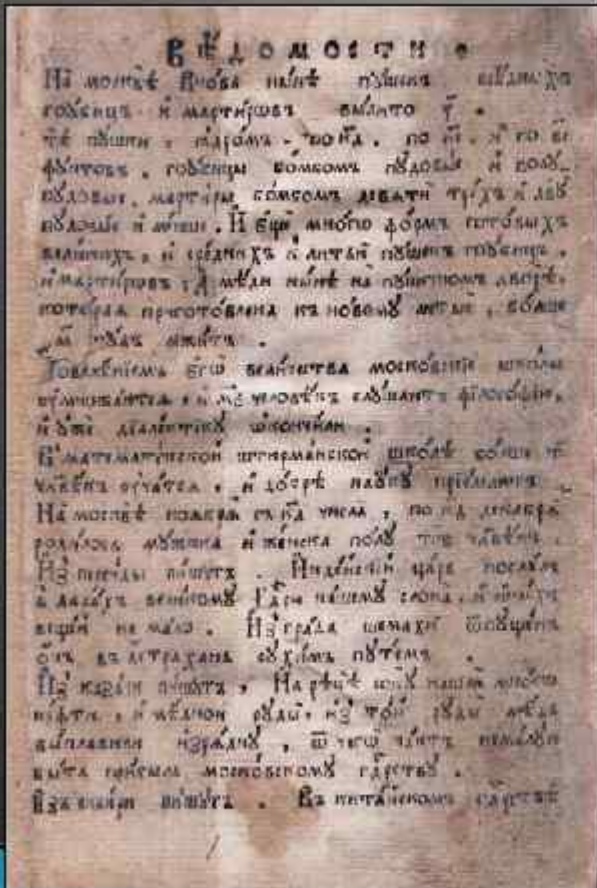 ВѢДОМОСТИ.
На москвѣ вновь нынѣ пушекъ мѣдныхъ
гоубицъ и мартировъ вылито у҃.
тѣ пушки, ядромъ по кд҃. по и҃і. и по в҃і
фунтовъ. гоубицы бомбомъ пудовые и полу-
пудовые. мартиры бомбомъ девяти трехъ и двӯ
пудовые и менше. И еще много формъ готовыхъ
великихъ, и среднихъ к литью пушекъ гоубицъ,
и мартировъ: А мѣди нынѣ на пушечномъ дворѣ,
которая приготовлена къ новому литью, болше
м҃ пудъ лежитъ.
Повелѣнїемъ егѡ величества московскїе школы
умножаютса, и м҃е человѣкъ слушаютъ фїлософїю,
и уже дїалектїку ѡкончили.
В математической штюрманской школѣ болше т҃
члвѣкъ учатса, и добрѣ науку прїемлютъ.
На москвѣ ноября съ кд҃ числа, по кд҃ декабря
родилось мужска и женска полу тпѕ члвѣкъ.
Из персиды пишутъ. Индѣйскїй царь послалъ
в дарахъ великому гдⷭрю нашему слона, и иныхъ
вещей не мало. Из града шемахи ѿпущенъ
онъ въ астрахань сухимъ путемъ.
Из казани пишутъ. На рѣкѣ соку нашли много
нефти, и мѣдной руды, из той руды мѣдь
выплавили изрядну, ѿ чегѡ чаютъ немалую
быть прибыль московскому гдⷭрству.
Изъ сибири пишутъ. Въ китайскомъ гдⷭрствѣ